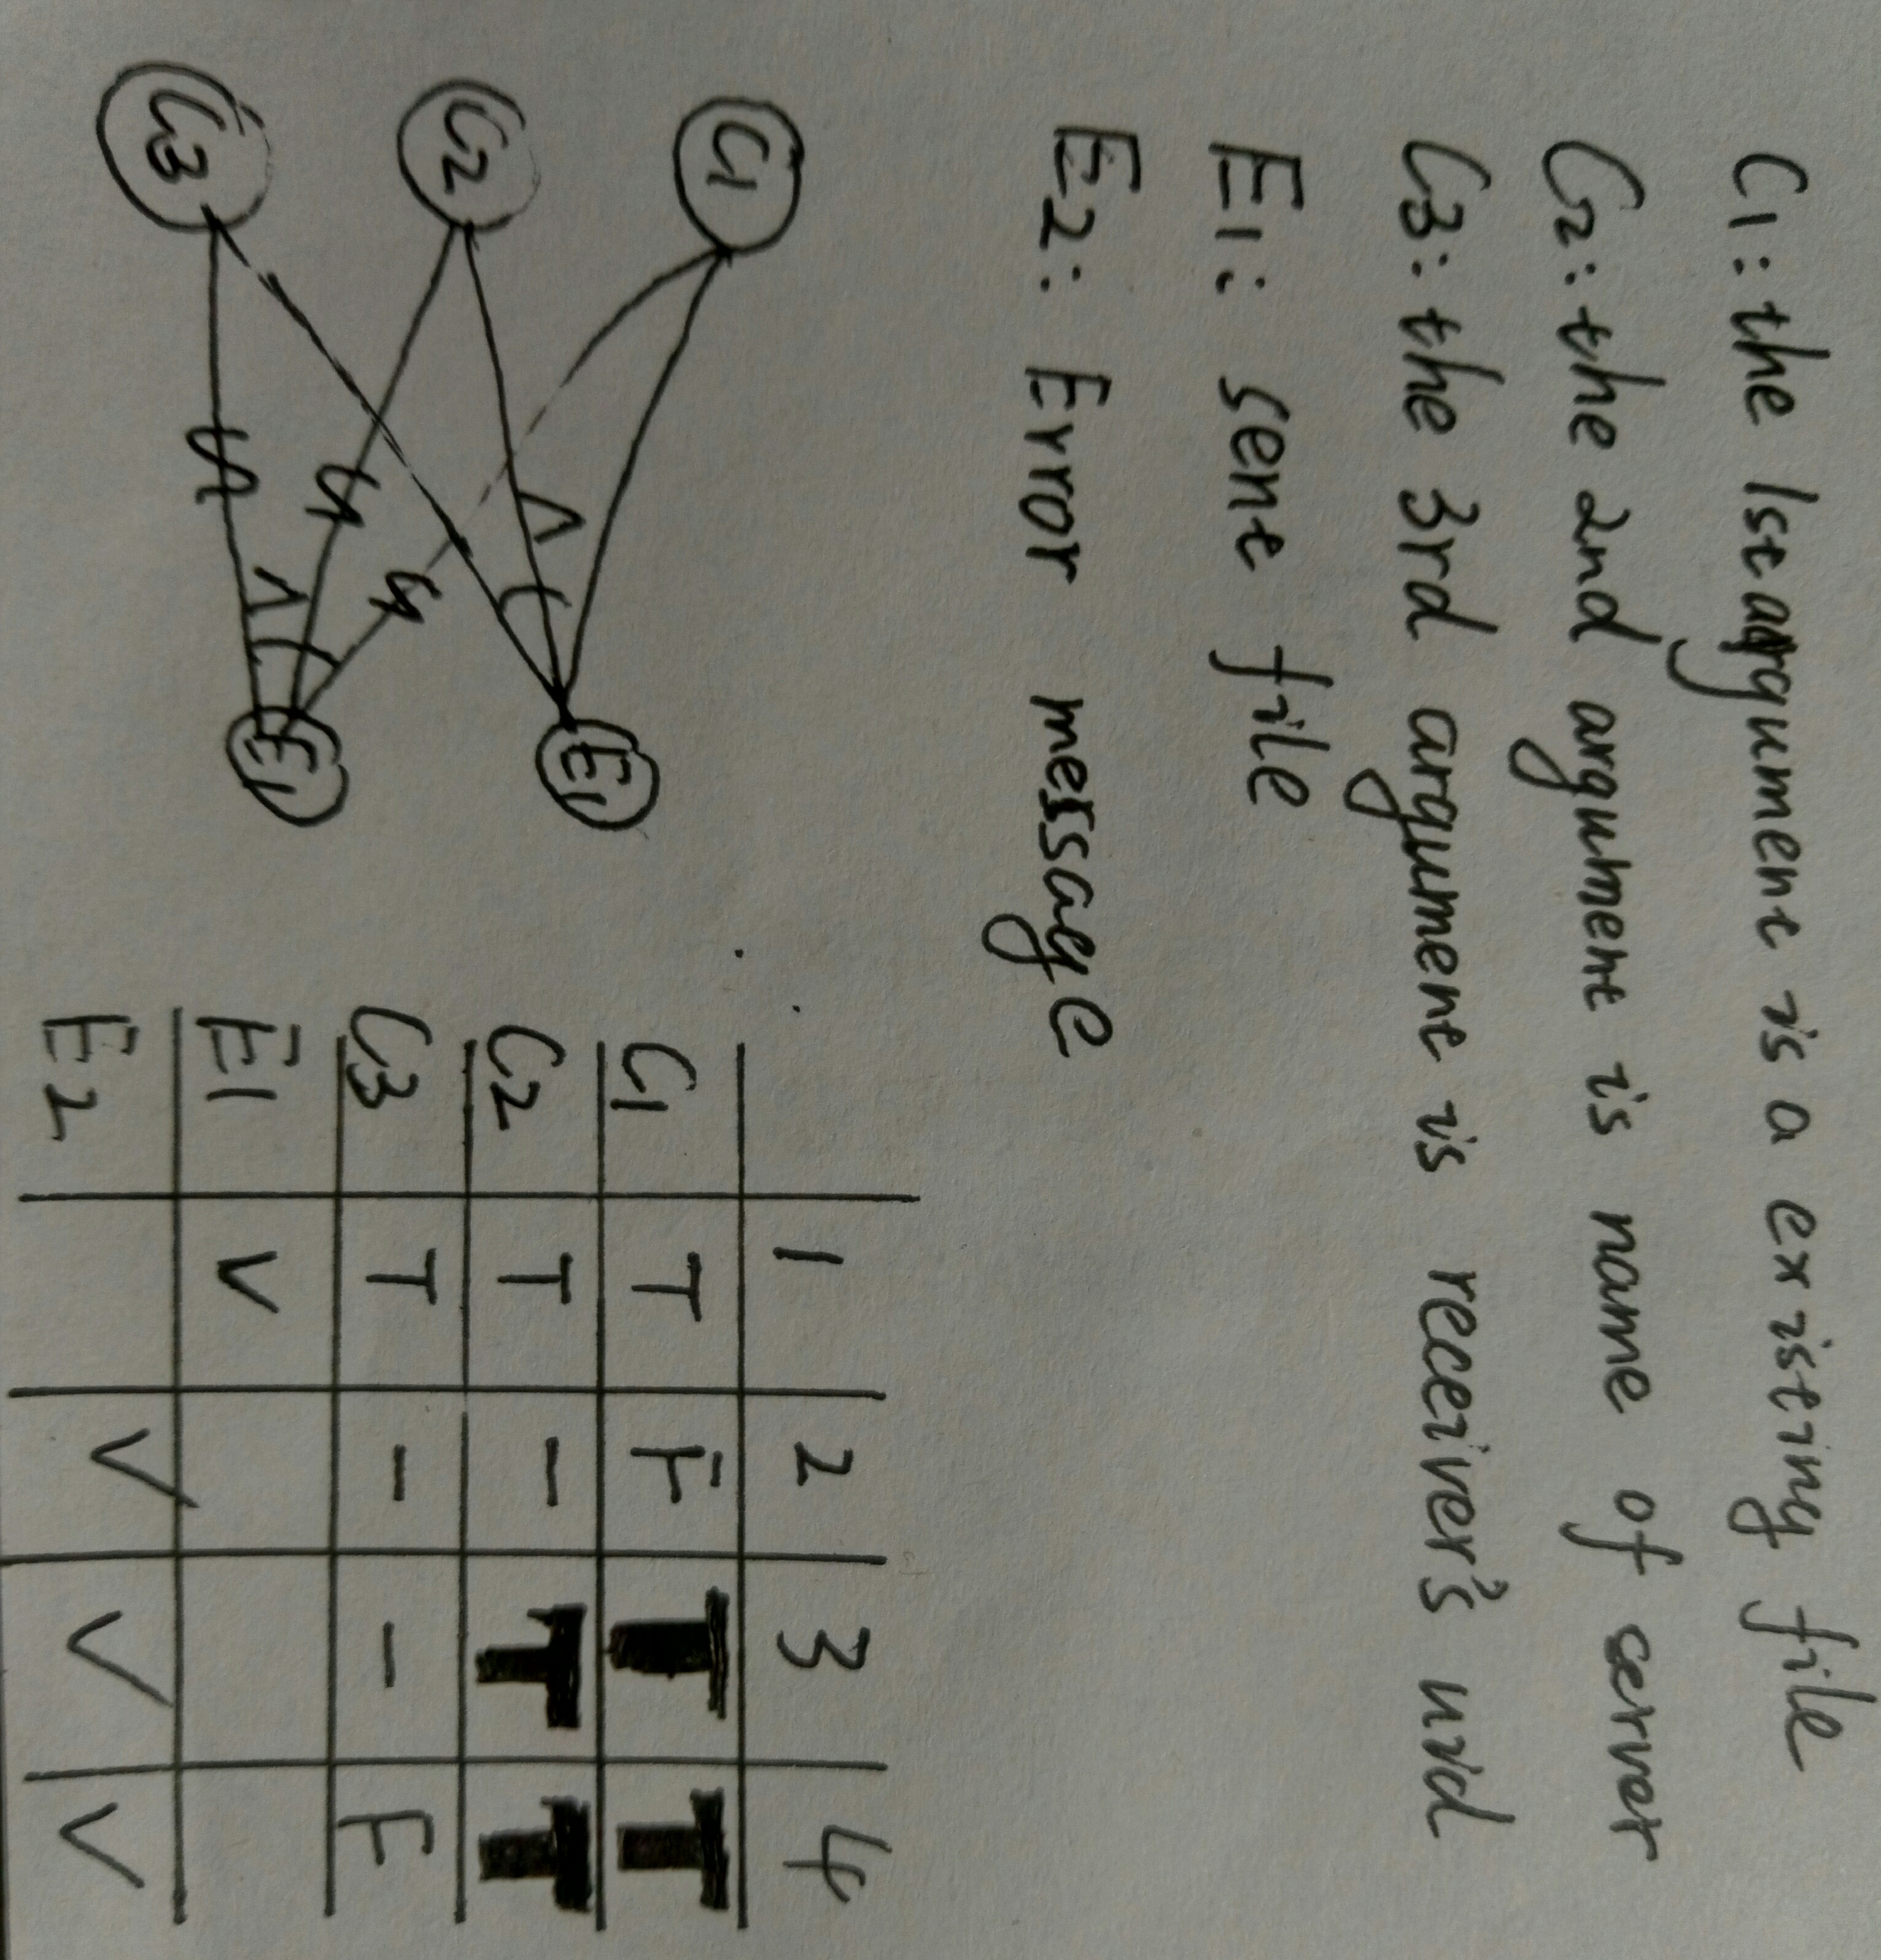 C1: the 1st argument is a existing file
C2: the 2nd argument is name of server
C3: the 3rd argument is receiver's uid
E1: sent file
E2: Error message
C1
E1
C2
C3
E1
Λ
Λ
1 2 3 4
C1 T F T T
C2 T - T T
C3 T - - F
E1 ✓
E2 ✓ ✓ ✓